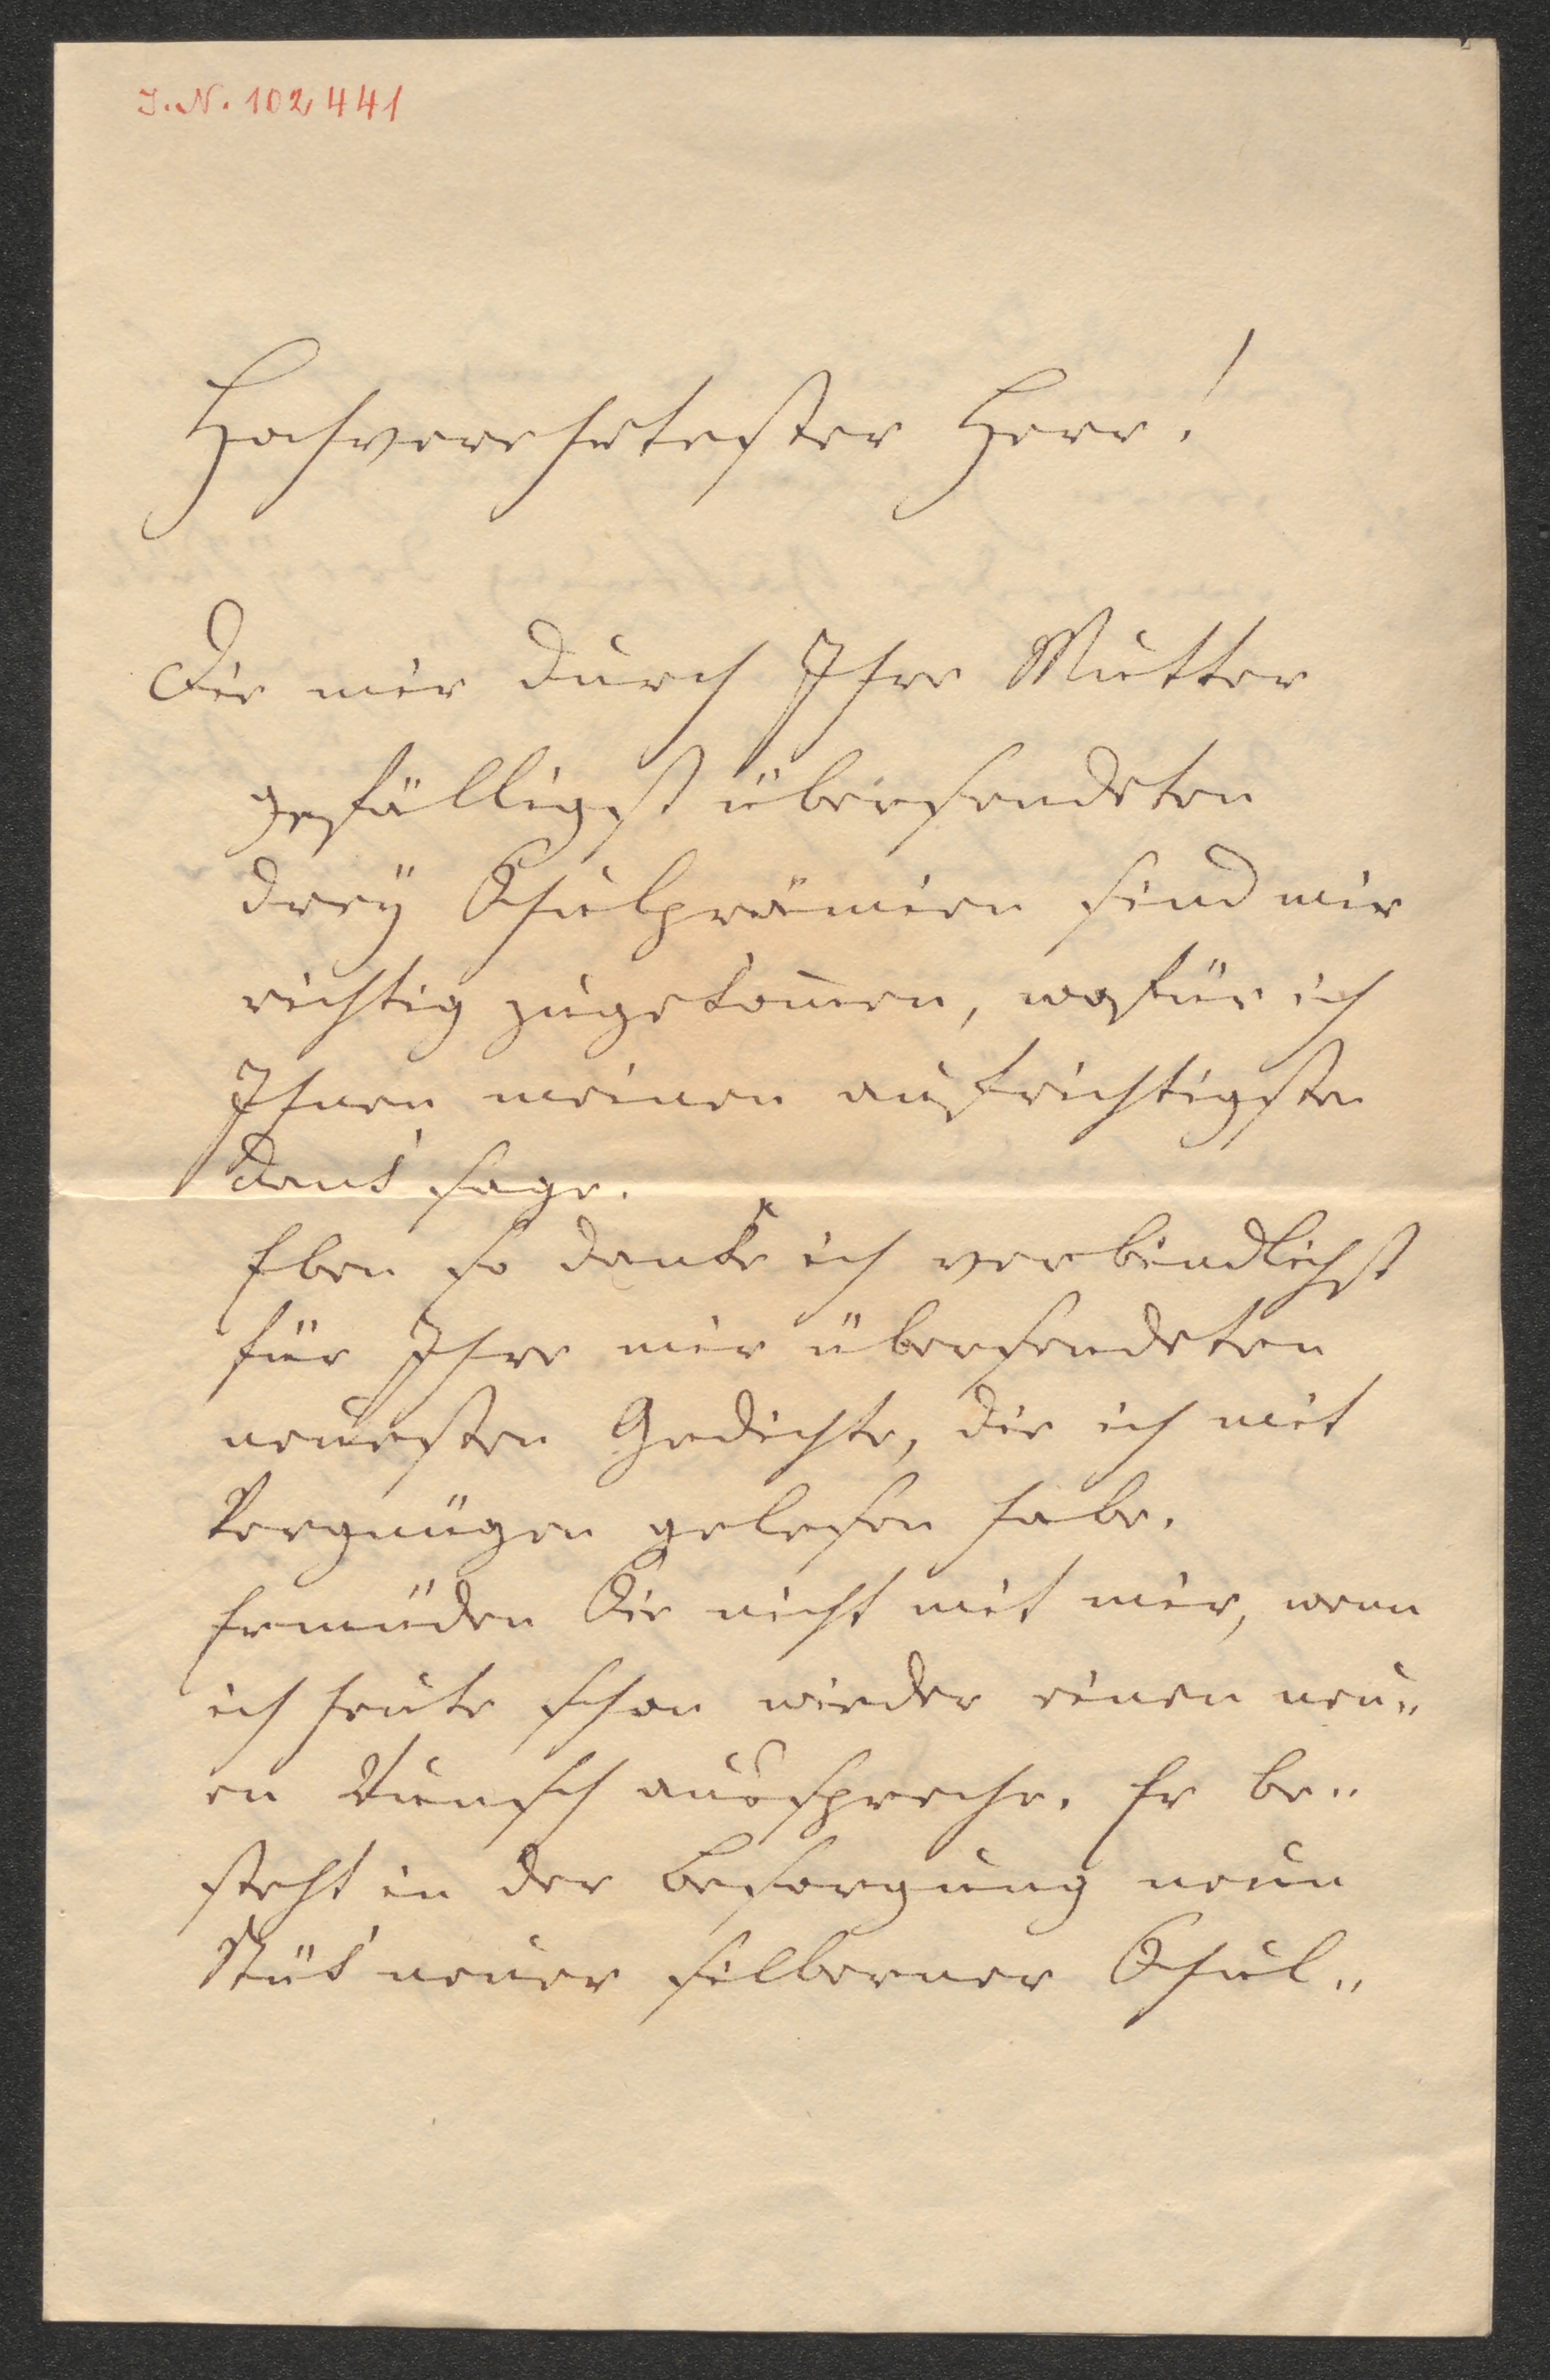 I.N. 102441
Hochverehrtester Herr!
Die mir durch Ihre Mutter
gefälligst übersendeten
drey Schulprämien sind mir
richtig zugekom̅en, wofür ich
Ihnen meinen aufrichtigsten
Dank sage.
Eben so danke ich verbindlichst
für Ihre mir übersendeten
neuesten Gedichte, die ich mit
Vergnügen gelesen habe.
Ermüden Sie nicht mit mir, wenn
ich heute schon wieder einen neu„
en Wunsch ausspreche. Er be„
steht in der Besorgung neun
Stük neuer silberner Schul„